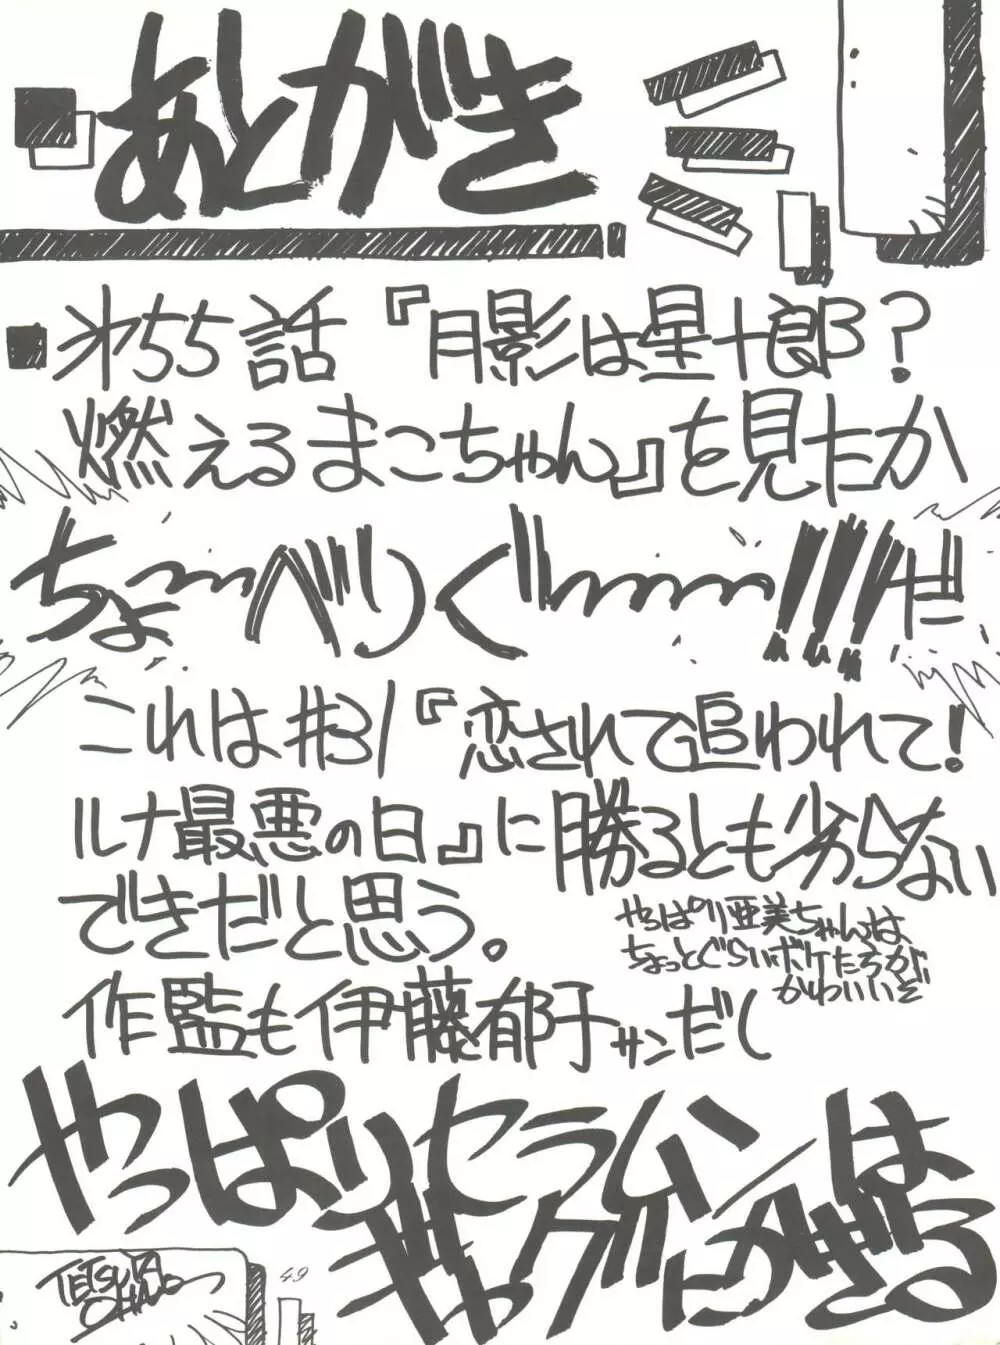 あとがき
■オ55話『月影は星十郎?
燃えるまこちゃん』を見たか
ちょーべりぐー!!!だ
これは#31『恋されて追われて!
ルナ最悪の日』に勝るとも劣らない
できだと思う。
やっぱり亜美ちゃんは、
ちょっとぐらいボケたろうが
かわいいぞ
作監も伊藤郁子サンだし
やっぱりセラムンは
ギャグにかぎる
TETSUYA
49